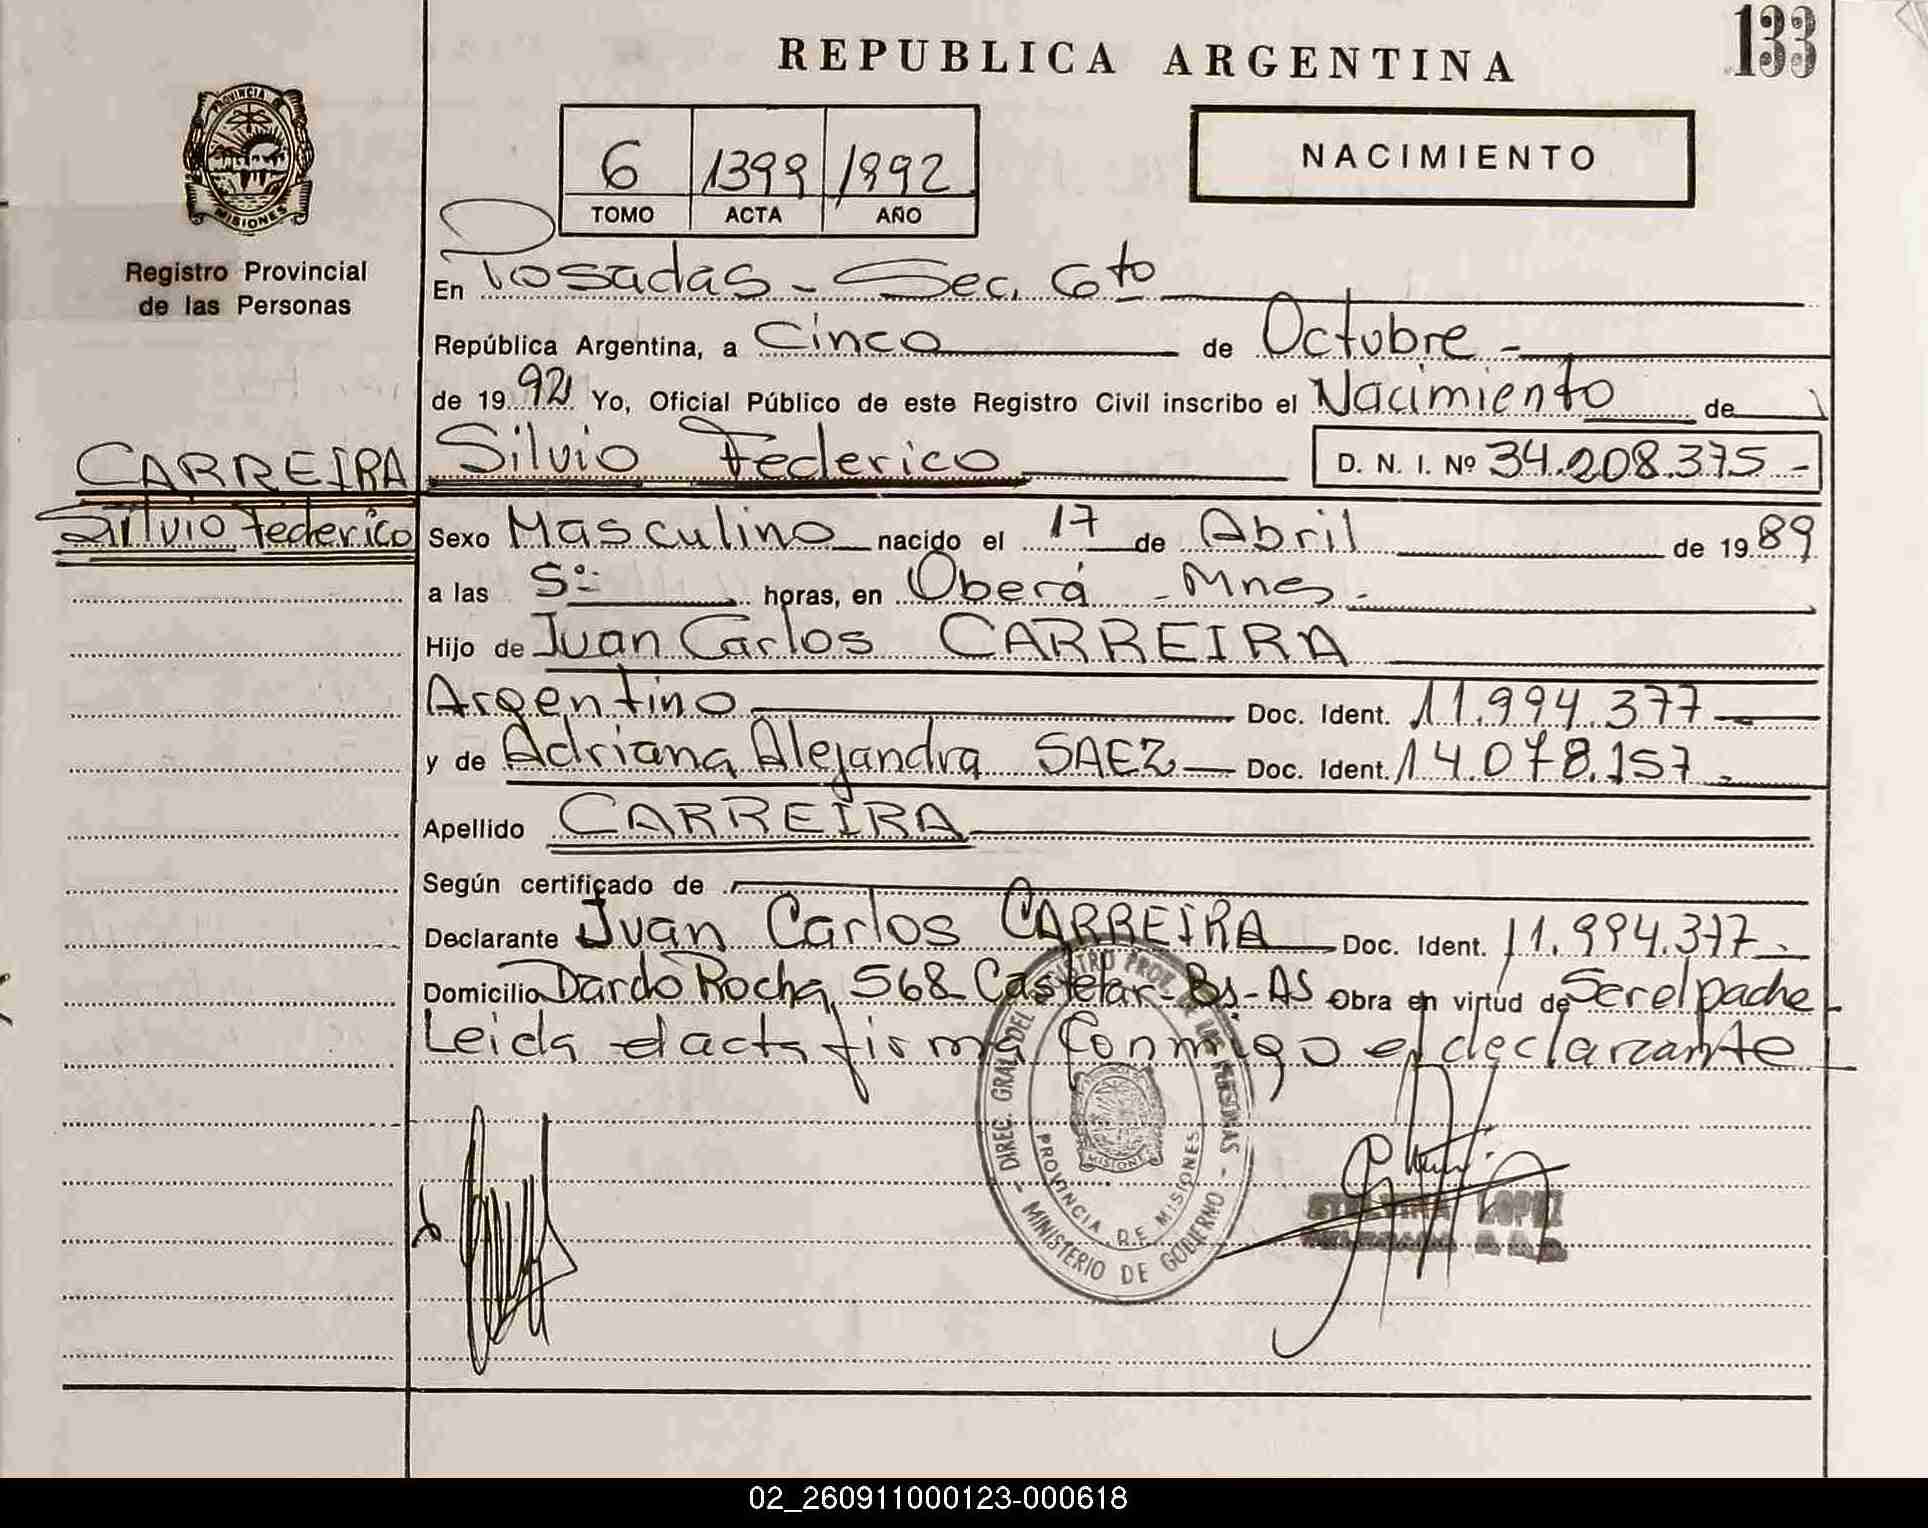 133
REPUBLICA ARGENTINA
PROVINCIA DE
MISIONES
Registro Provincial
de las Personas
NACIMIENTO
6 1399 1992
TOMO ACTA AÑO
En Posadas - Sec. 6to
República Argentina, a Cinco de Octubre -
de 1992 Yo, Oficial Público de este Registro Civil inscribo el Nacimiento de
CARREIRA
Silvio Federico
Silvio Federico D. N. I. Nº 34.208.375 -
Sexo Masculino nacido el 17 de Abril de 1989
a las 5º horas, en Oberá - Mnes -
Hijo de Juan Carlos CARREIRA
Argentino Doc. Ident. 11.994.377
y de Adriana Alejandra SAEZ Doc. Ident. 14.078.157 -
Apellido CARREIRA
Según certificado de
Declarante Juan Carlos CARREIRA Doc. Ident. 11.994.377 -
Domicilio Dardo Rocha 568 Castelar - Bs - AS Obra en virtud de Ser el padre
Leida el acta firma Conmigo el declarante
DIREC. GRAL. DEL REGISTRO PROV. DE LAS PERSONAS - MINISTERIO DE GOBIERNO -
PROVINCIA DE MISIONES
MISIONES
LOPEZ
02_260911000123-000618